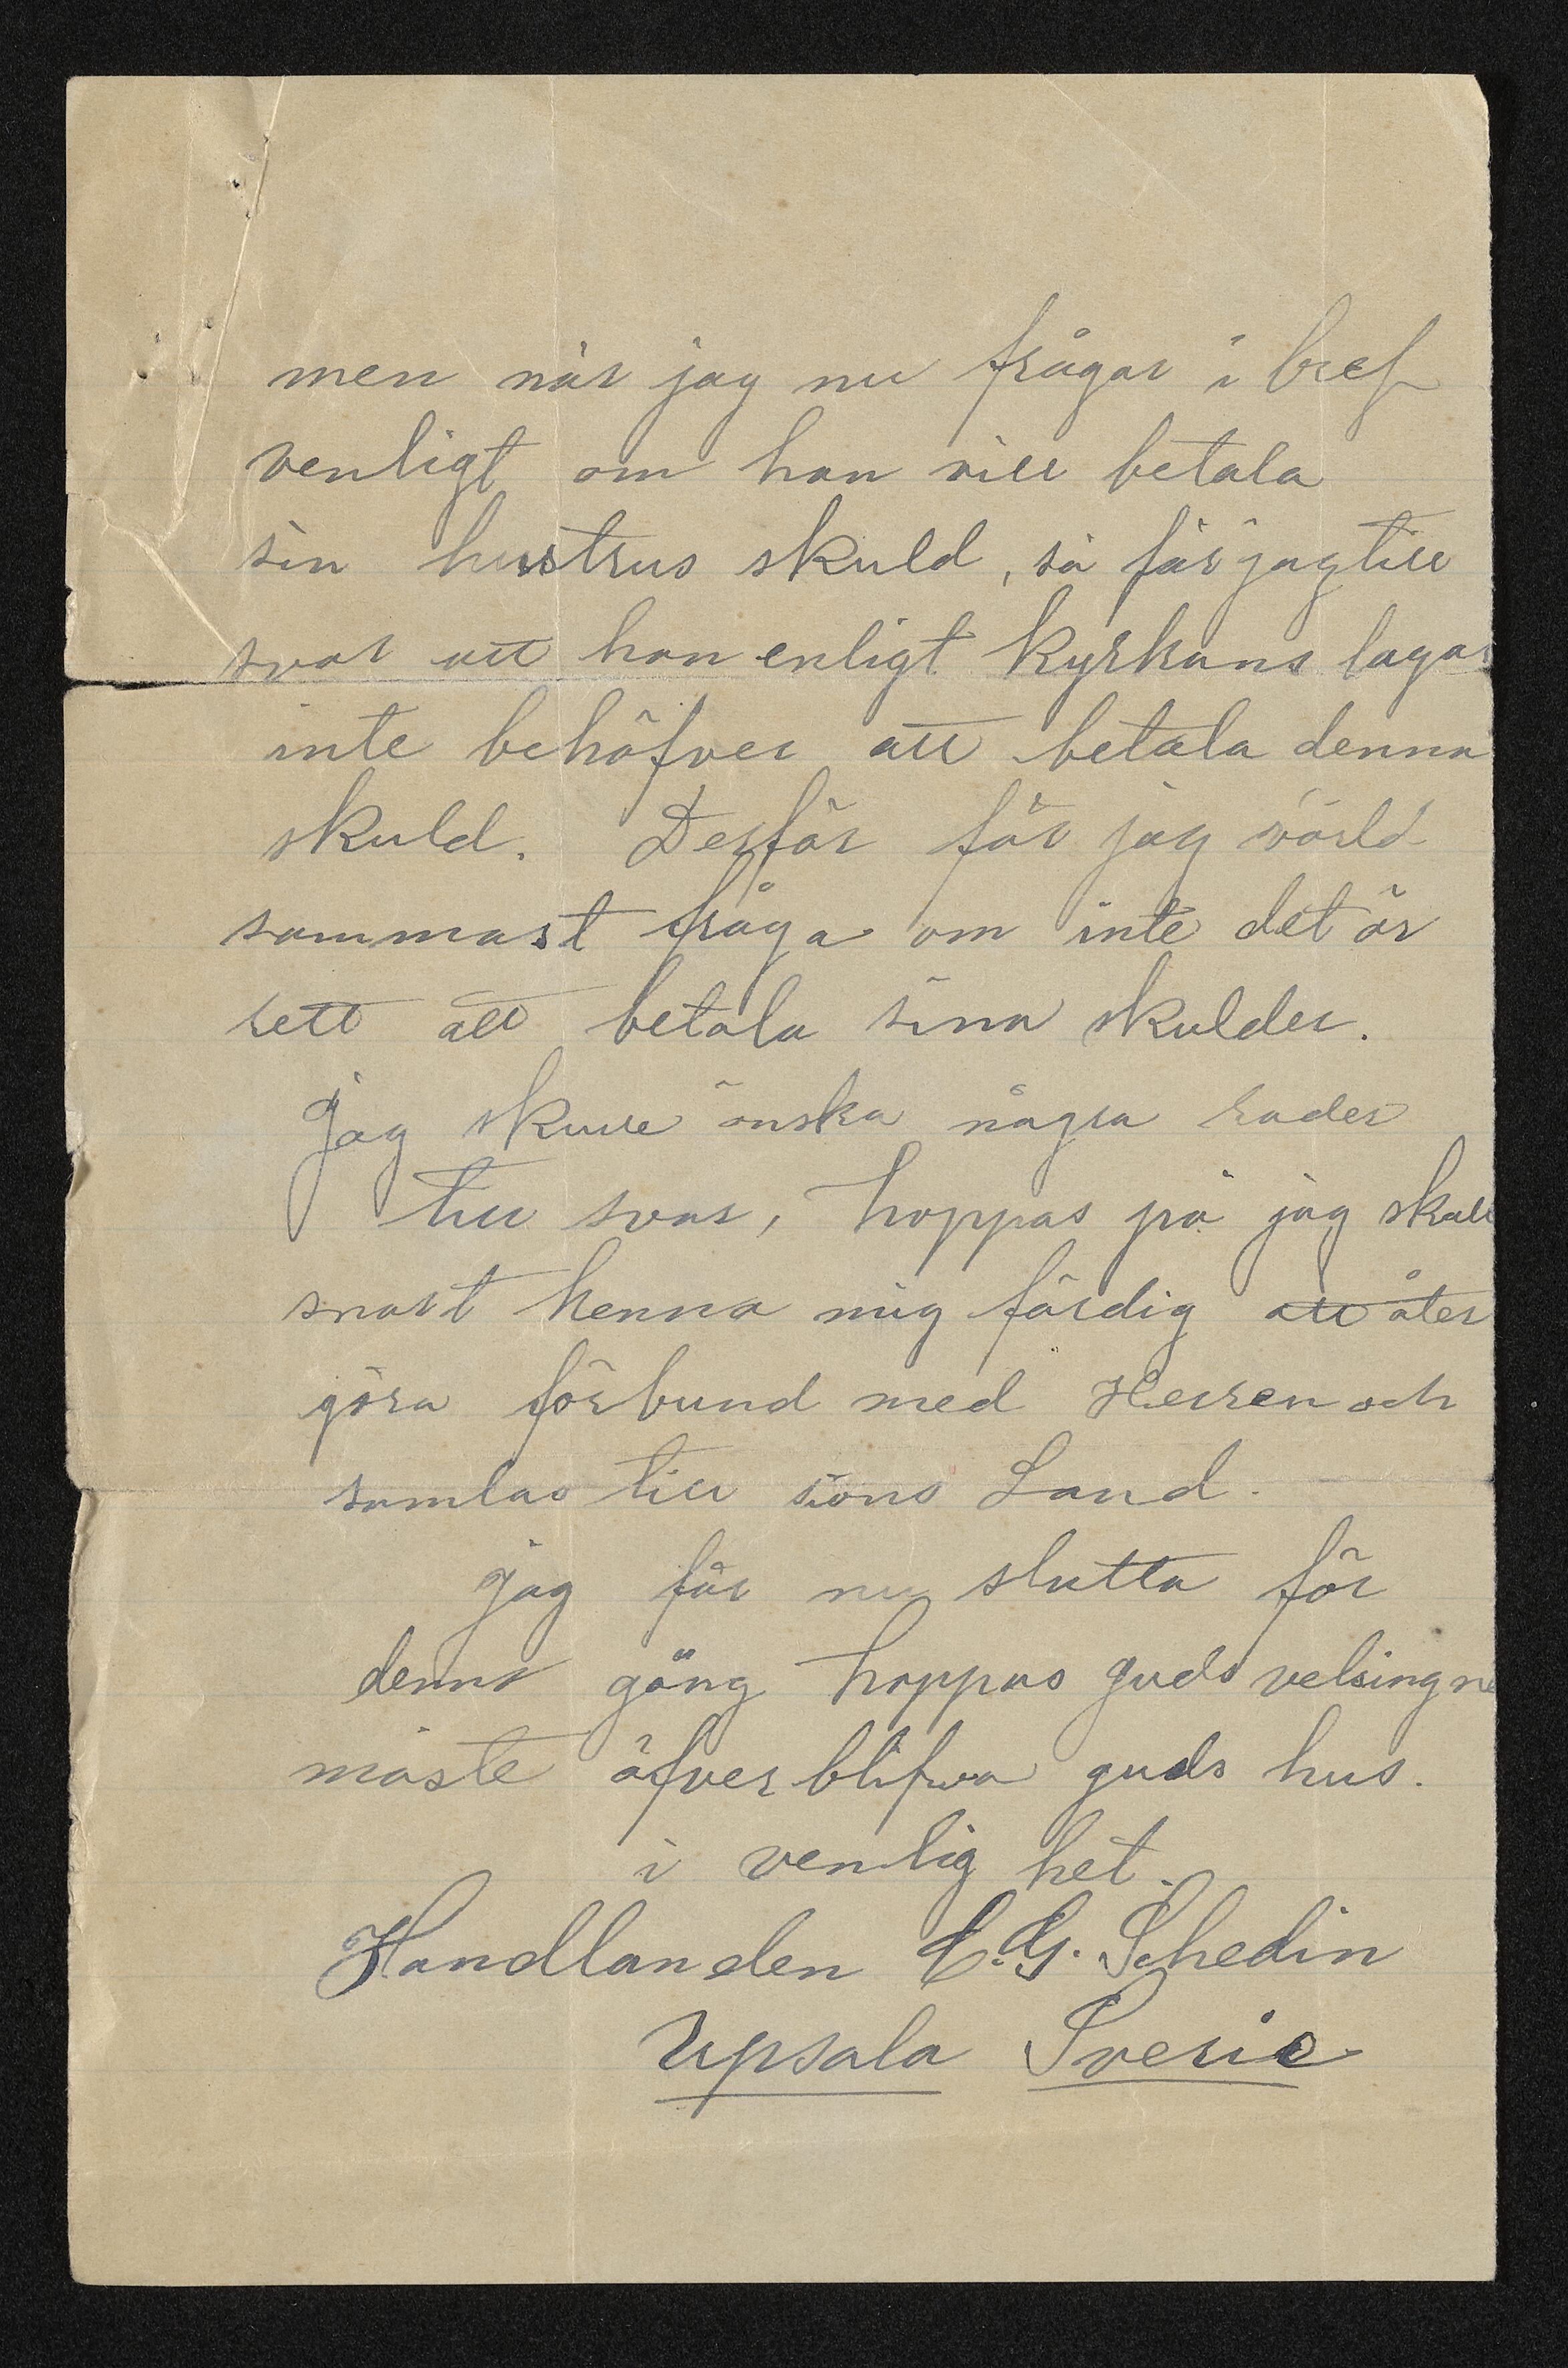 men når jag nu frågar i bref
venligt om han vill betala
sin hustrus skuld, så får jag till
svar att han enligt kyrkans lagar
inte behöfver att betala denna
skuld. Derför får jag vörld
sammast fråga om inte det är
rett att betala sina skulder.
Jag skulle önska några rader
till svar, hoppas på jag skall
snart kenna mig färdig att åter
göra förbund med Herren och
samlas till sions Land.
jag får nu slutta för
denna gång hoppas guds velsingne
måste öfver blifva guds hus.
i venlig het.
Handlanden C.G. Schedin
Upsala Sverie